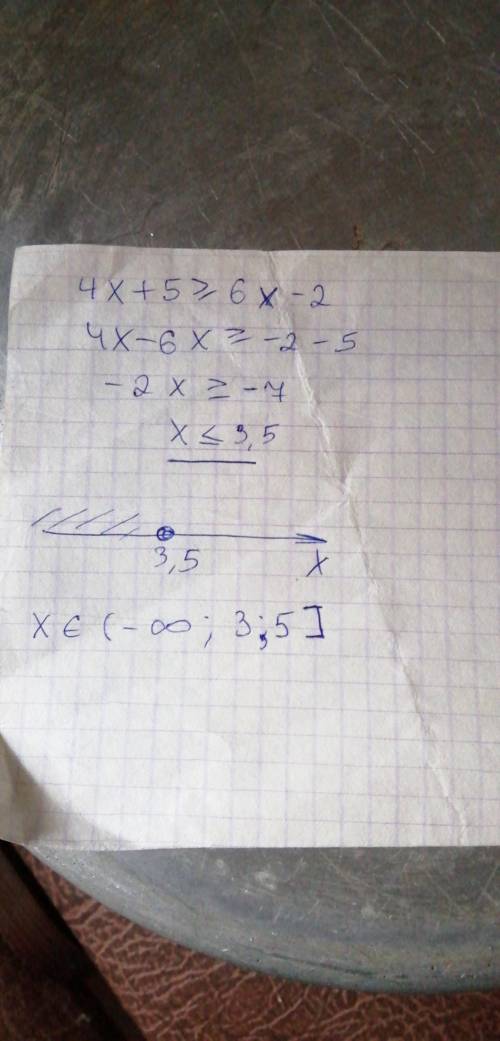 4x+5≥6x-2
4x-6x≥-2-5
-2x≥-7
x≤3,5
3,5
x
x∈(-∞; 3,5]